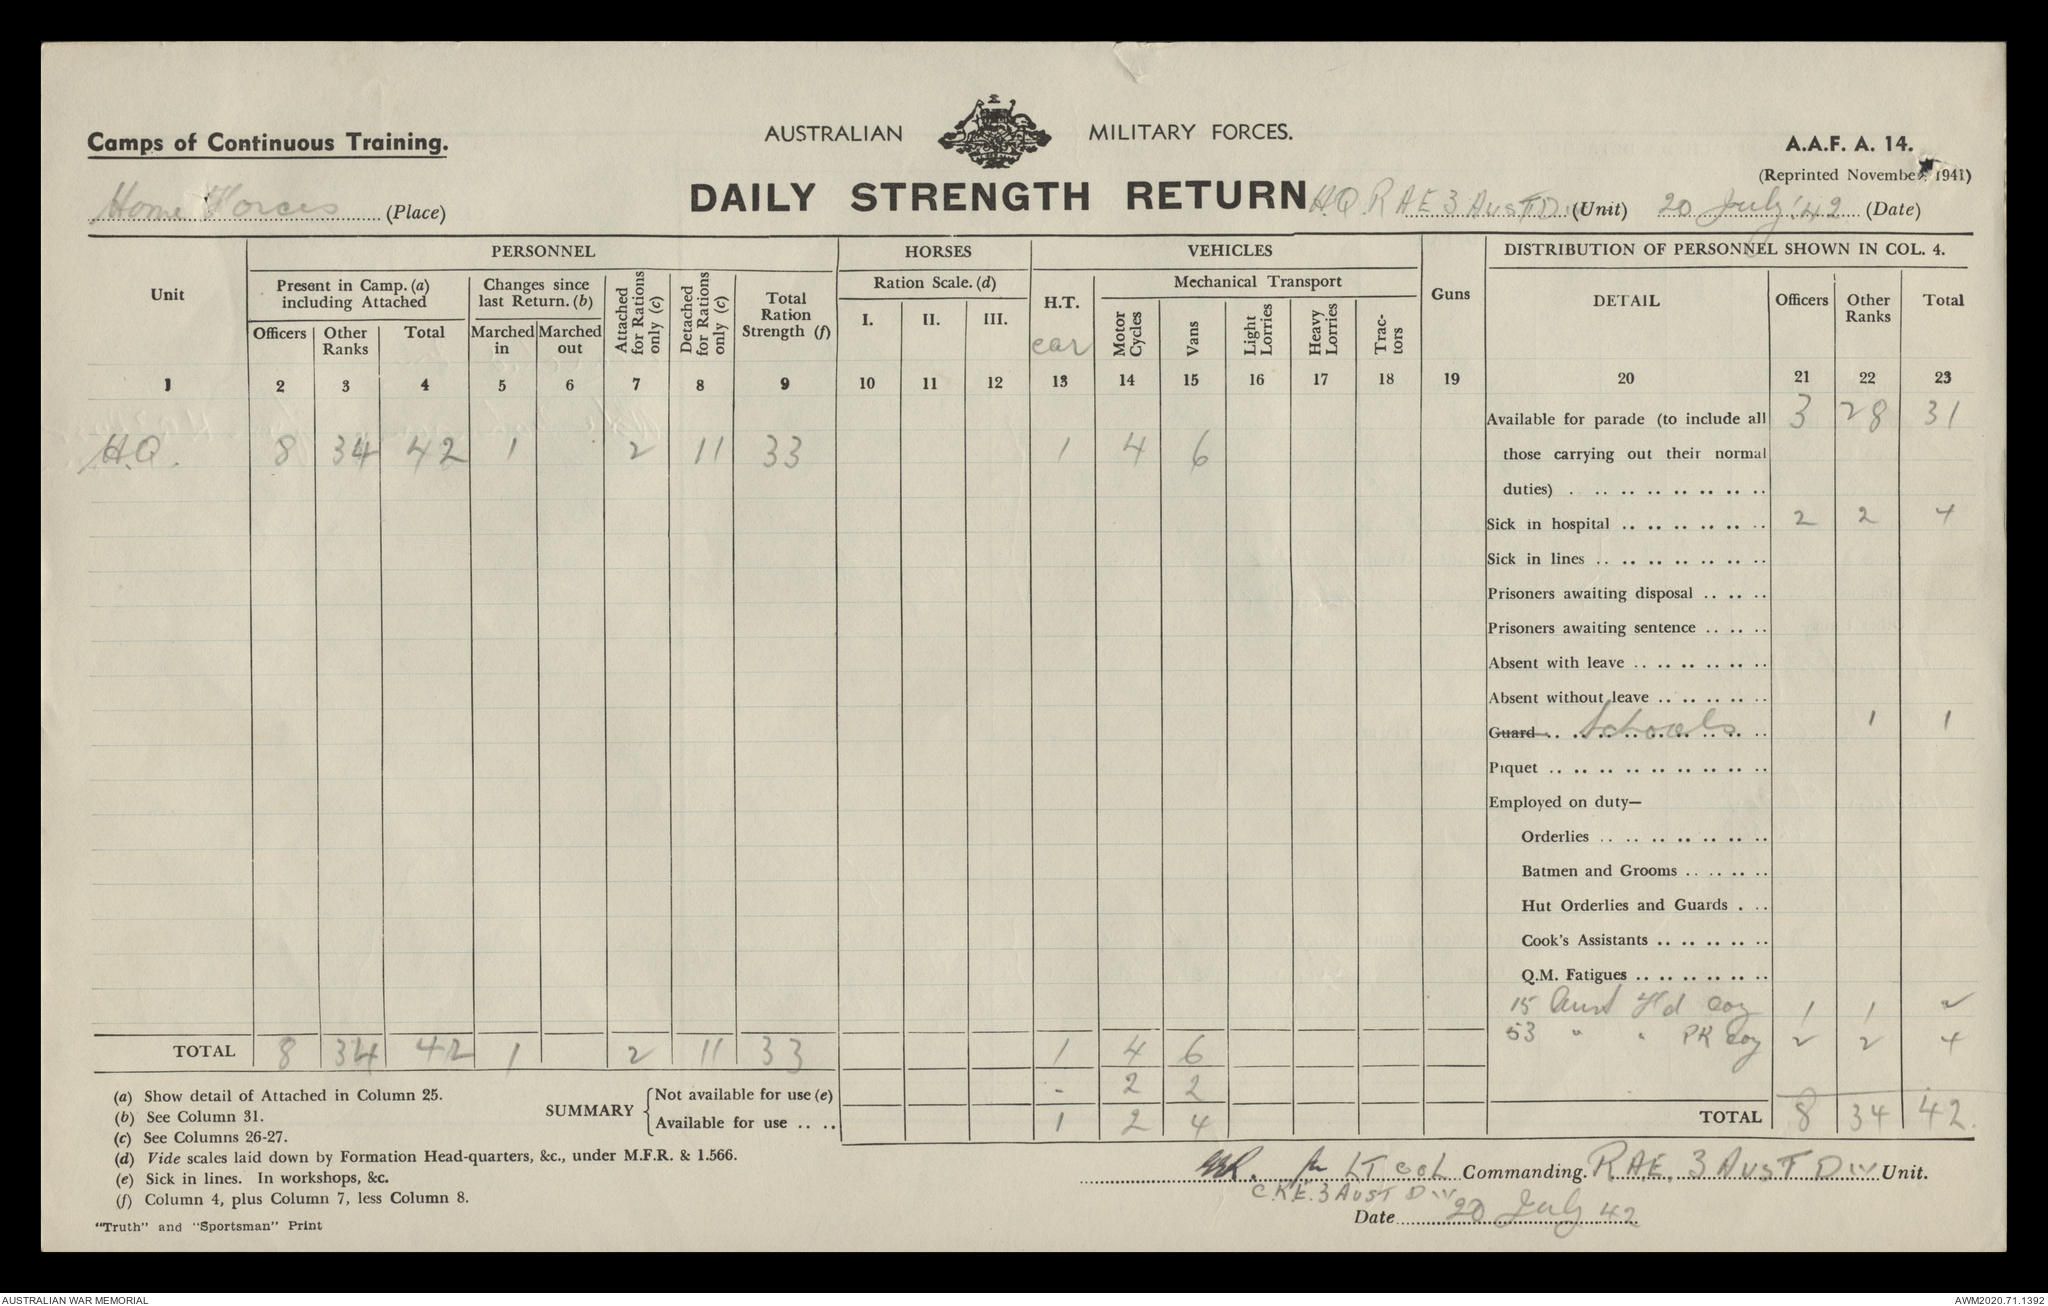 Camps of Continuous Training.
AUSTRALIAN MILITARY FORCES.
A.A.F. A. 14.
(Reprinted November, 1941)
Home Forces (Place)
DAILY STRENGTH RETURN
H.Q. R A E 3 AUST DIV (Unit) 20 July '42 (Date)
PERSONNEL HORSES VEHICLES DISTRIBUTION OF PERSONNEL SHOWN IN COL. 4.
Unit
Present in Camp. (a) including Attached
Changes since last Return. (b)
Attached for Rations only (c)
Detached for Rations only (c)
Total Ration Strength (f)
Ration Scale. (d)
H.T.
car
Mechanical Transport
Guns
DETAIL Officers Other Ranks Total
Officers Other Ranks Total Marched in Marched out
I. II. III.
Motor Cycles Vans Light Lorries Heavy Lorries Trac-tors
1 2 3 4 5 6 7 8 9 10 11 12 13 14 15 16 17 18 19 20 21 22 23
H.Q. 8 34 42 1 2 11 33 1 4 6
Available for parade (to include all 3 28 31
those carrying out their normal
duties) . .. .. .. .. .. .. ..
Sick in hospital .. .. .. .. .. .. 2 2 4
Sick in lines .. .. .. .. .. .. ..
Prisoners awaiting disposal .. .. ..
Prisoners awaiting sentence .. .. ..
Absent with leave .. .. .. .. .. ..
Absent without leave .. .. .. .. ..
Guard .. Schools 1 1
Piquet .. .. .. .. .. .. .. .. ..
Employed on duty—
Orderlies .. .. .. .. .. .. ..
Batmen and Grooms .. .. .. ..
Hut Orderlies and Guards . ..
Cook's Assistants .. .. .. .. ..
Q.M. Fatigues .. .. .. .. .. ..
15 Aust F'd Coy 1 1 2
53 " " PK Coy 2 2 4
TOTAL 8 34 42 1 2 11 33 1 4 6
SUMMARY
Not available for use (e) - 2 2
Available for use .. .. 1 2 4
TOTAL 8 34 42.
(a) Show detail of Attached in Column 25.
(b) See Column 31.
(c) See Columns 26-27.
(d) Vide scales laid down by Formation Head-quarters, &c., under M.F.R. & 1.566.
(e) Sick in lines. In workshops, &c.
(f) Column 4, plus Column 7, less Column 8.
"Truth" and "Sportsman" Print
LT COL Commanding. R.A.E. 3 AUST DIV Unit.
C.R.E. 3 AUST DIV
Date 20 July 42
AUSTRALIAN WAR MEMORIAL
AWM2020.71.1392